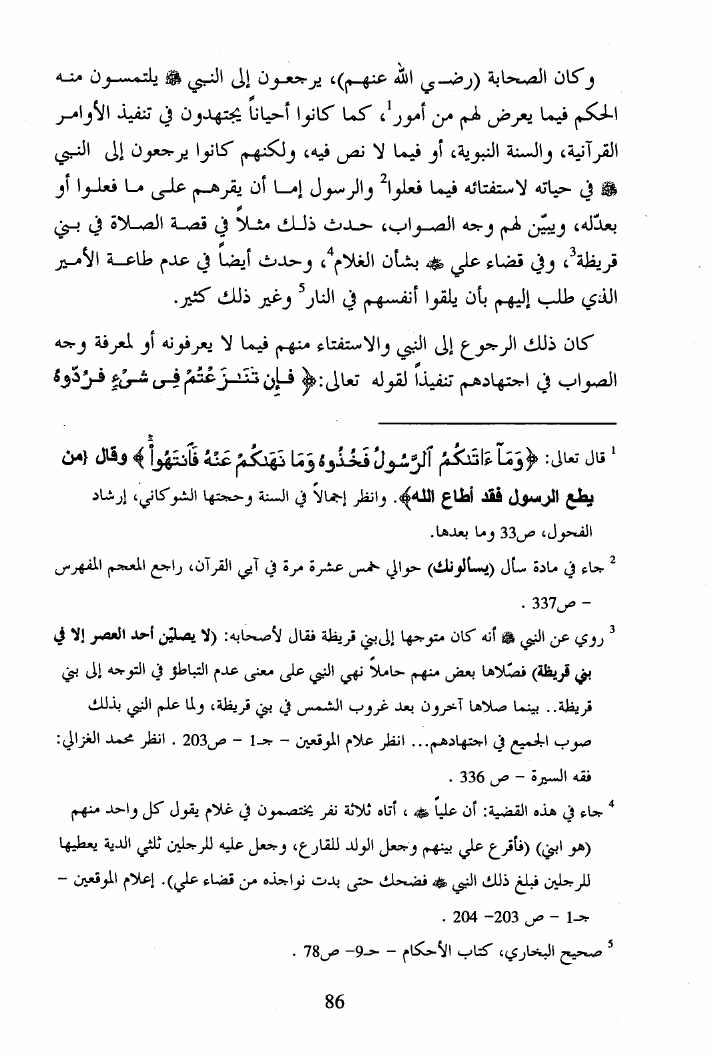 وكان الصحابة (رضي الله عنهم)، يرجعون إلى النبي ﷺ يلتمسون منه
الحكم فيما يعرض لهم من أمور1، كما كانوا أحياناً يجتهدون في تنفيذ الأوامر
القرآنية، والسنة النبوية، أو فيما لا نص فيه، ولكنهم كانوا يرجعون إلى النبي
ﷺ في حياته لاستفتائه فيما فعلوا2 والرسول إما أن يقرهم على ما فعلوا أو
يعدّله، ويبيّن لهم وجه الصواب، حدث ذلك مثلاً في قصة الصلاة في بني
قريظة3، وفي قضاء علي ﵁ بشأن الغلام4، وحدث أيضاً في عدم طاعة الأمير
الذي طلب إليهم بأن يلقوا أنفسهم في النار5 وغير ذلك كثير.
كان ذلك الرجوع إلى النبي والاستفتاء منهم فيما لا يعرفونه أو لمعرفة وجه
الصواب في اجتهادهم تنفيذاً لقوله تعالى:﴿ فَإِن تَنَـٰزَعْتُمْ فِى شَىْءٍ فَرُدُّوهُ
1 قال تعالى: ﴿وَمَآ ءَاتَىٰكُمُ ٱلرَّسُولُ فَخُذُوهُ وَمَا نَهَىٰكُمْ عَنْهُ فَٱنتَهُوا۟ۚ ﴾ وقال {من
يطع الرسول فقد أطاع الله﴾. وانظر إجمالاً في السنة وحجتها الشوكاني، إرشاد
الفحول، ص33 وما بعدها.
2 جاء في مادة سأل (يسألونك) حوالي خمس عشرة مرة في آيي القرآن، راجع المعجم المفهرس
– ص337 .
3 روي عن النبي ﷺ أنه كان متوجها إلى بني قريظة فقال لأصحابه: (لا يصليّن أحد العصر إلا في
بني قريظة) فصّلاها بعض منهم حاملاً نهي النبي على معنى عدم التباطؤ في التوجه إلى بني
قريظة.. بينما صلاها آخرون بعد غروب الشمس في بني قريظة، ولما علم النبي بذلك
صوب الجميع في اجتهادهم... انظر علام الموقعين – جـ1 – ص203 . انظر محمد الغزالي:
فقه السيرة – ص 336 .
4 جاء في هذه القضية: أن علياً ﵁ ، أتاه ثلاثة نفر يختصمون في غلام يقول كل واحد منهم
(هو ابني) (فأقرع علي بينهم وجعل الولد للقارع، وجعل عليه للرجلين ثلثي الدية يعطيها
للرجلين فبلغ ذلك النبي ﷺ فضحك حتى بدت نواجذه من قضاء علي). إعلام الموقعين –
جـ1 – ص 203– 204 .
5 صحيح البخاري، كتاب الأحكام – جـ9– ص78 .
86